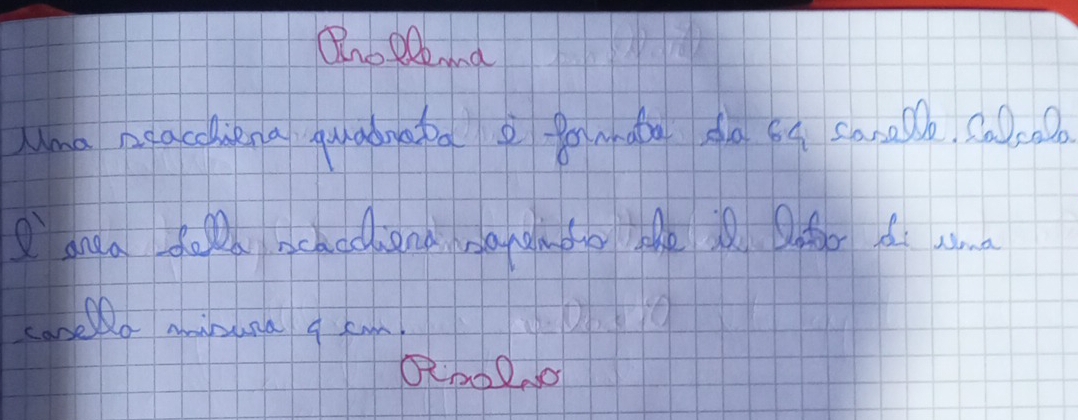 Problema
Una scacchiera quadrata è formata da 64 caselle. Calcola
l'area della scacchiera sapendo che il lato di una
casella misura 4 cm.
Risolvo